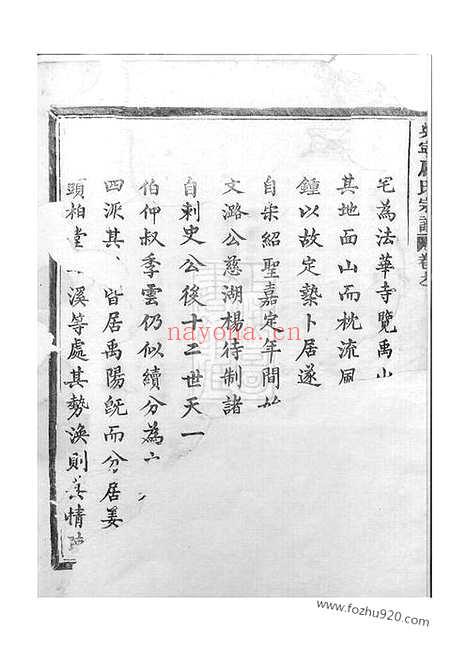 宅為法華寺覽禹山
其地面山而枕流風
鍾以故定埶卜居遂
自宋紹聖嘉定年間始
文潞公慈湖楊待制諸
自刺史公後十二世天一
伯仲叔季雲仍似續分為
四派其皆居禹陽旣而分居姜
頭柏堂溪等處其勢渙則其情
氏宗譜卷
nayona.cn
www.fozhu920.com